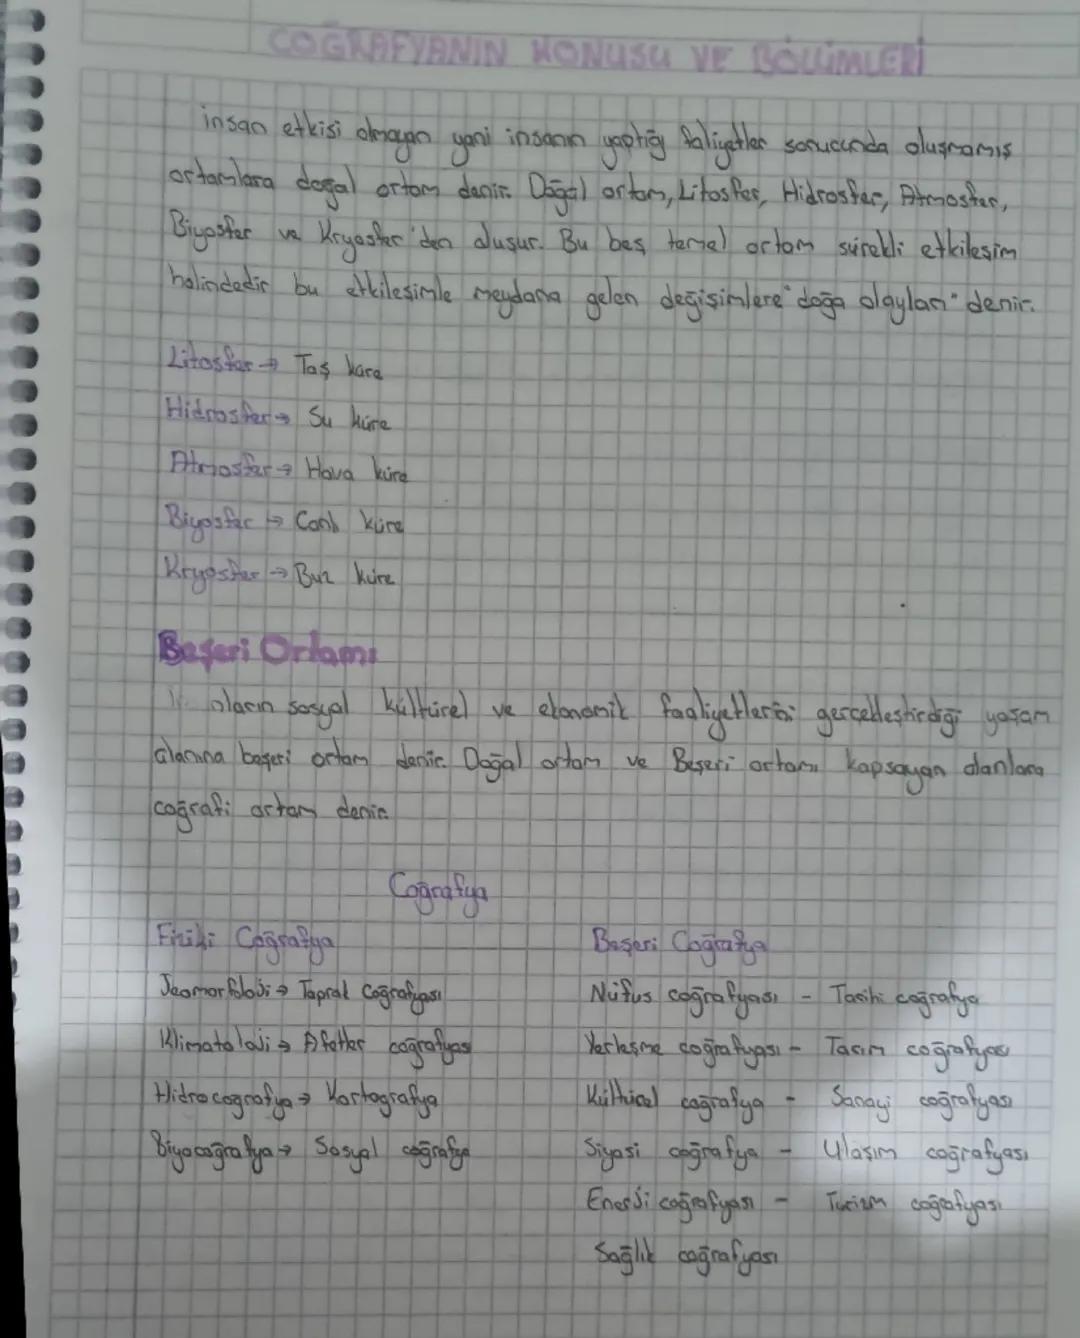 COĞRAFYANIN KONUSU VE BÖLÜMLERİ
insan etkisi olmayan yani insanın yaptığı faliyetler sonucunda oluşmamış
ortamlara doğal ortam denir. Doğal ortam, Litosfer, Hidrosfer, Atmosfer,
Biyosfer ve Kryosfer'den oluşur. Bu beş temel ortam sürekli etkileşim
halindedir bu etkileşimle meydana gelen değişimlere "doğa olayları" denir.
Litosfer → Taş küre
Hidrosfer → Su küre
Atmosfer → Hava küre
Biyosfer → Canlı küre
Kryosfer → Buz küre
Beşeri Ortam:
sosyal kültürel ve ekonomik faaliyetlerini gerçekleştirdiği yaşam
alanına beşeri ortam denir. Doğal ortam ve Beşeri ortamı kapsayan alanlara
coğrafi ortam denir.
Coğrafya
Fiziki Coğrafya
Beşeri Coğrafya
Jeomorfoloji → Toprak Coğrafyası
Nüfus coğrafyası - Tarihi coğrafya
Klimatoloji → Afetler coğrafyası
Yerleşme coğrafyası - Tarım coğrafyası
Hidrocoğrafya → Kartografya
Kültürel coğrafya - Sanayi coğrafyası
Biyocoğrafya → Sosyal coğrafya
Siyasi coğrafya - Ulaşım coğrafyası
Enerji coğrafyası - Turizm coğrafyası
Sağlık coğrafyası